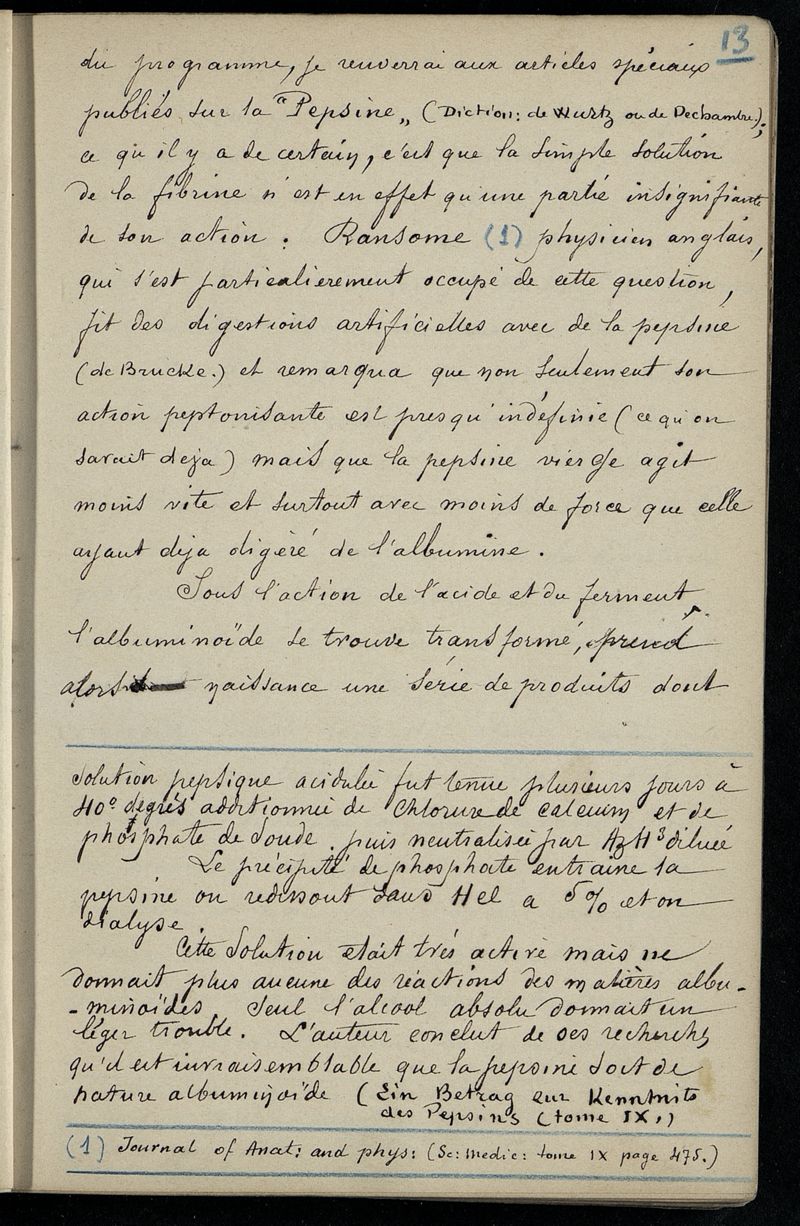 13
du programme, je renverrai aux articles spéciaux
publiés sur la "Pepsine„ (Diction: de Wurtz ou de Dechambre.);
ce qu'il y a de certain, c'est que la simple solution
de la fibrine n'est en effet qu'une partie insignifiante
de son action. Ransome (1) physicien anglais,
qui s'est particulierement occupé de cette question,
fit des digestions artificielles avec de la pepsine
(de Brucke.) et remarqua que non seulement son
action peptonisante est presqu'indéfinie (ce qu'on
savait deja) mais que la pepsine vierge agit
moins vite et surtout avec moins de force que celle
ayant deja digéré de l'albumine.
Sous l'action de l'acide et du ferment
l'albuminoïde se trouve transformé, prend
alors naissance une série de produits dont
solution pepsique acidulée fut tenue plusieurs jours à
40° degrés additionnée de Chlorure de calcium et de
phosphate de soude. puis neutralisée par AzH³ diluée
Le précipité de phosphate entraine la
pepsine on redissout dans Hcl a 5% et on
dialyse.
Cette solution etait très active mais ne
donnait plus aucune des réactions des matières albu-
-minoïdes. Seul l'alcool absolu donnait un
léger trouble. L'auteur conclut de ses recherches
qu'il est invraisemblable que la pepsine soit de
nature albuminoïde (Ein Betrag zur Kenntnits
des Pepsins (tome IX.)
(1) Journal of Anat: and phys: (Sc: medic: tome IX page 475.)